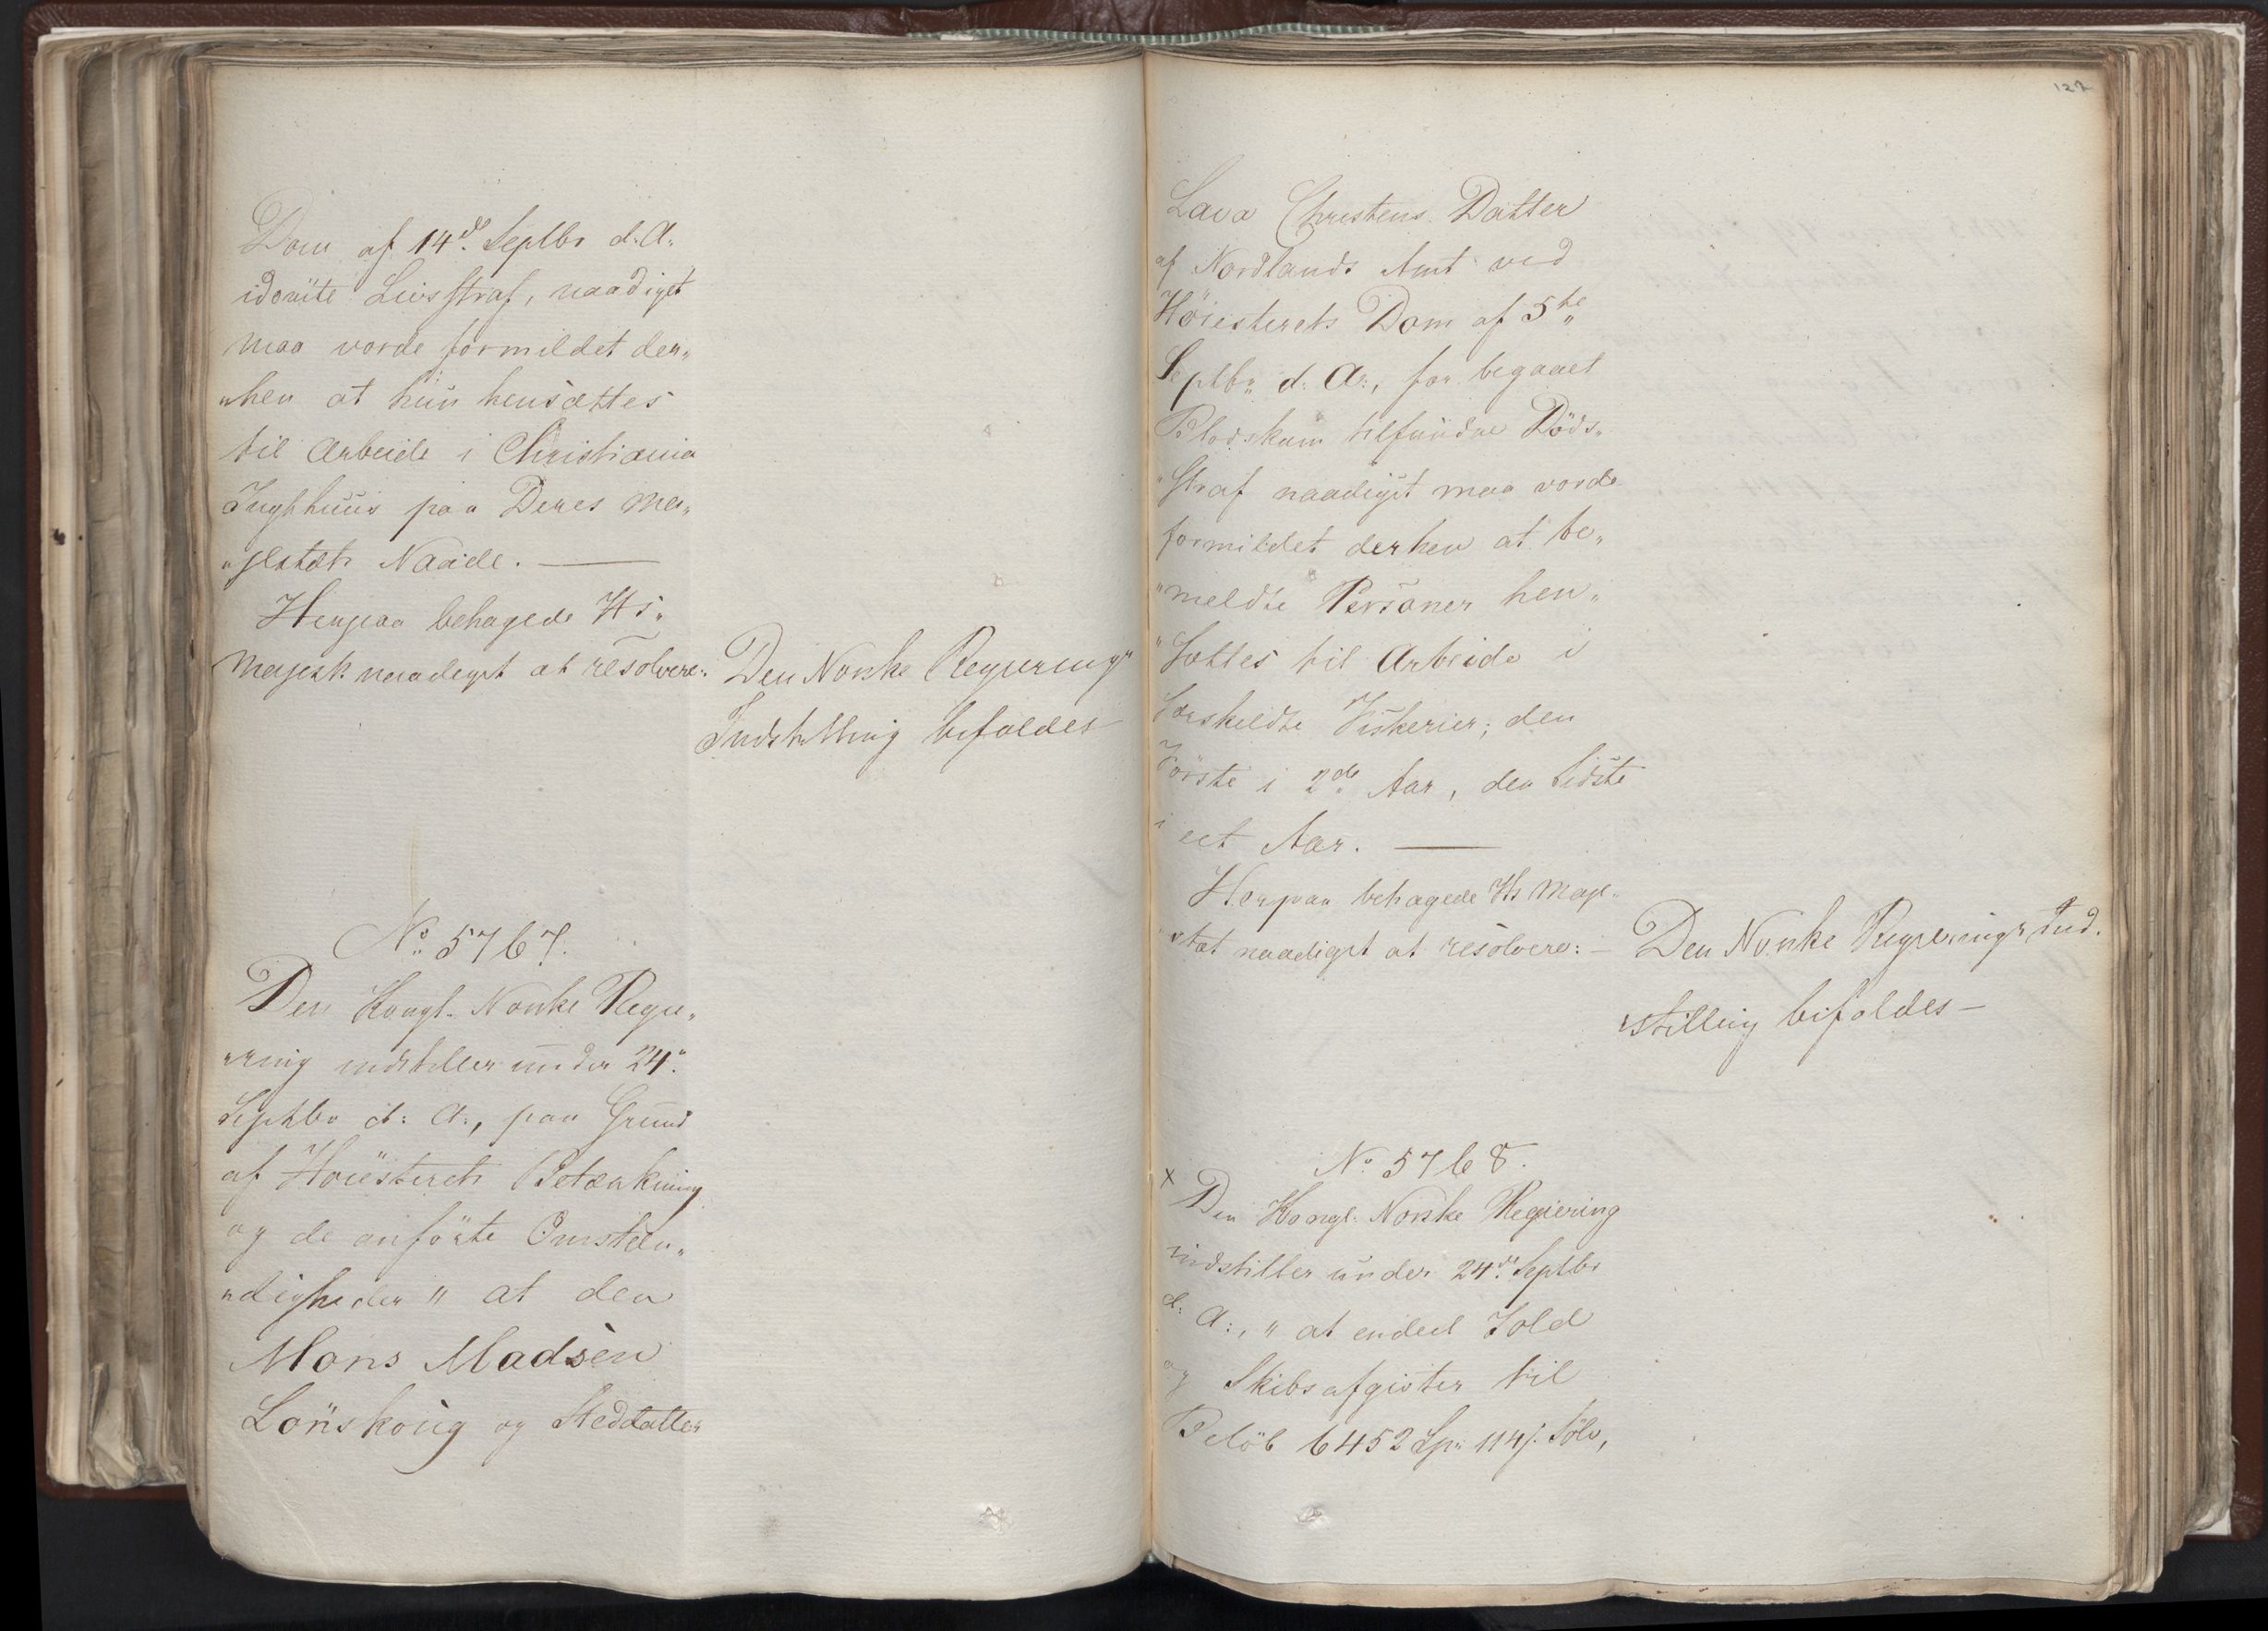 Dom af 14de Septbr d: A:
idömte Livsstraf, naadigst
maa vorde formildet der„
„hen at hun hensættes
til Arbeide i Christiania
Tugthuus paa Deres Ma„
„jestæts Naade. —
Herpaa behagede Hs„
Majest naadigst at resolvere:
Den Norske Regierings
Indstilling bifaldes
No 5767.
Den Kongl. Norske Regie„
„ring indstiller under 24„
Septbr d: A:, paa Grund
af Höiesterets Betænkning
og de anförte Omstæn„
„digheder „ at den
Mons Madsen
Lönskoug og Steddatter
122
Lava Christens Datter
af Nordlands Amt ved
Höiesterets Dom af 5te
Septbr d: A:, for begaaet
Blodskam tilfundne Döds„
„Straf naadigst maa vorde
formildet derhen at be„
„meldte Personer hen„
„Sættes til Arbeide i
Særskildte Fiskerier; den
Förste i 2de Aar, den Sidste
i eet Aar. —
Herpaa behagede Hs Maje„
„stæt naadigst at resolvere: —
Den Norske Regierings Ind„
„stilling bifaldes —
No 5768.
x Den Kongl: Norske Regiering
indstiller under 24de Septbr
d: A:, „ at endeel Told
og Skibsafgivter til
Belöb 6452 Sp: 114 s. Sölv,